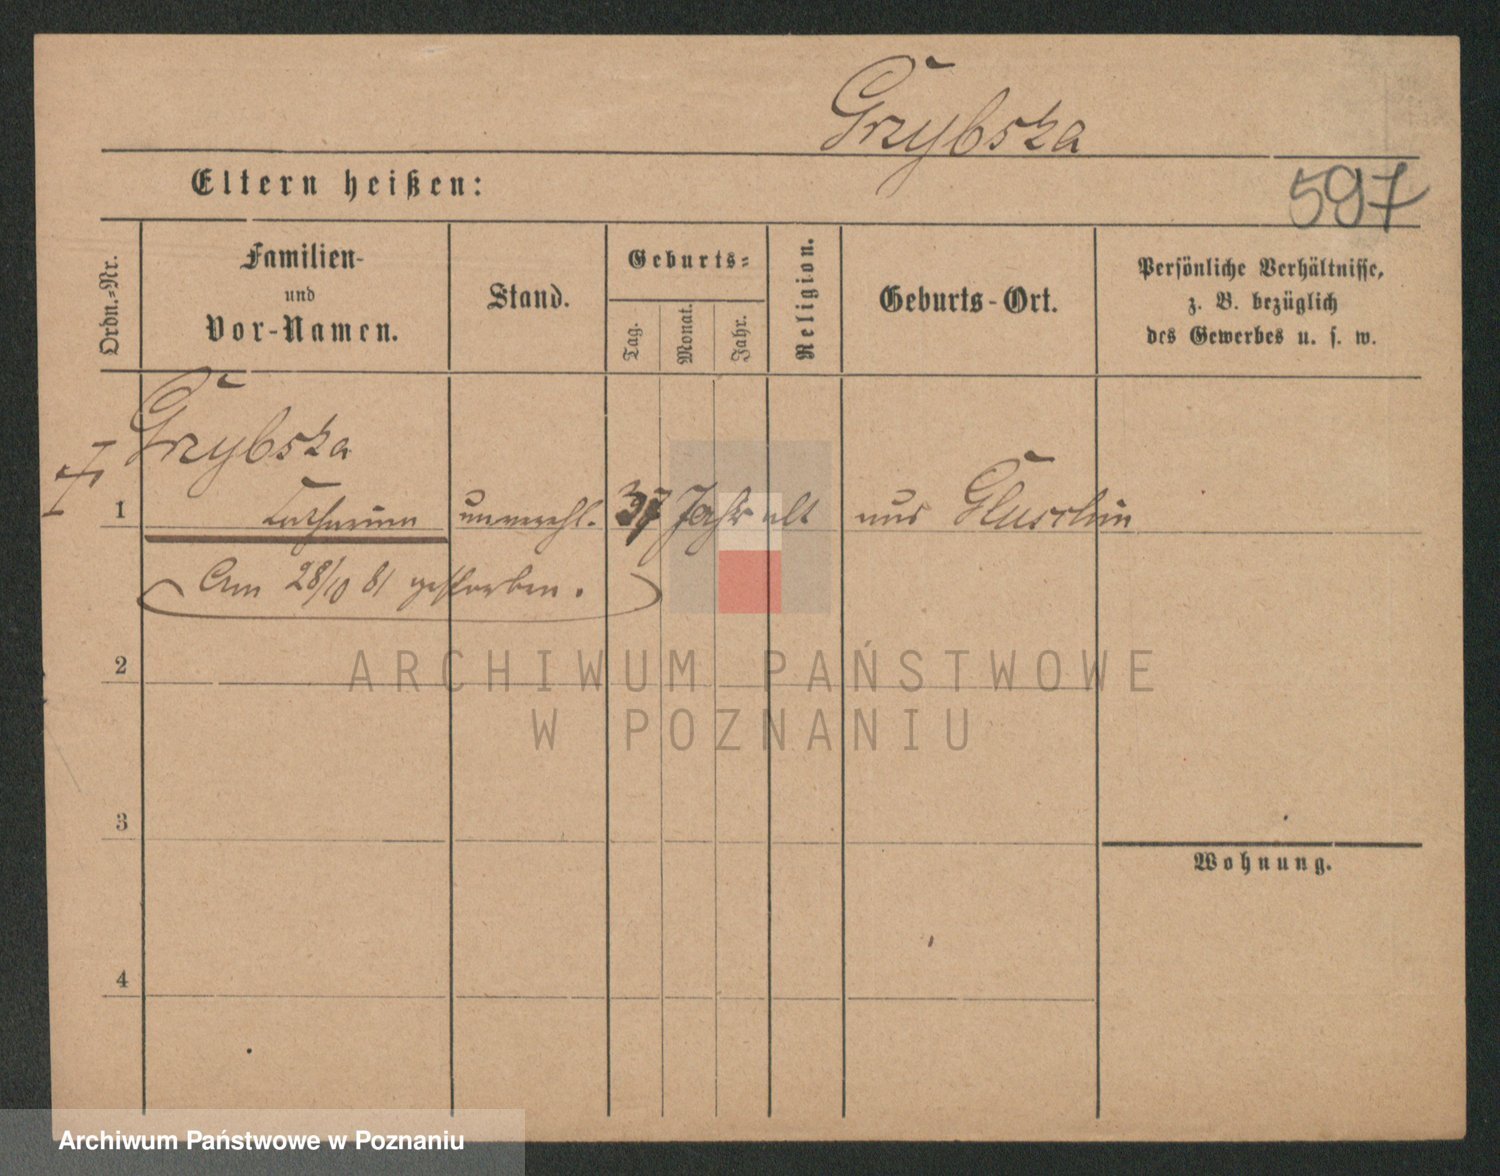 Grzybska
597
Eltern heißen:
Ordn.-Nr.
Familien-
und
Vor-Namen.
Stand.
Geburts-
Tag.
Monat.
Jahr.
Religion.
Geburts-Ort.
Persönliche Verhältnisse,
z. B. bezüglich
des Gewerbes u. s. w.
Grzybska
1 Catharina unverehl. 37 Jahr alt aus Gluschin
Am 28/10 81 gestorben.
2
ARCHIWUM PAŃSTWOWE
W POZNANIU
3
Wohnung.
4
Archiwum Państwowe w Poznaniu